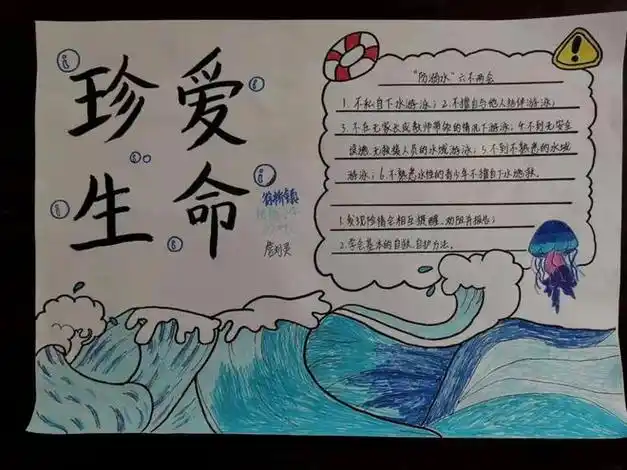 珍爱
生命
"防溺水"六不两会
1.不私自下水游泳；2.不擅自与他人结伴游泳；
3.不在无家长或教师带领的情况下游泳；4.不到无安全
设施、无救援人员的水域游泳；5.不到不熟悉的水域
游泳；6.不熟悉水性的青少年不擅自下水施救。
1.发现险情会相互提醒、劝阻并报告；
2.学会基本的自救、自护方法。